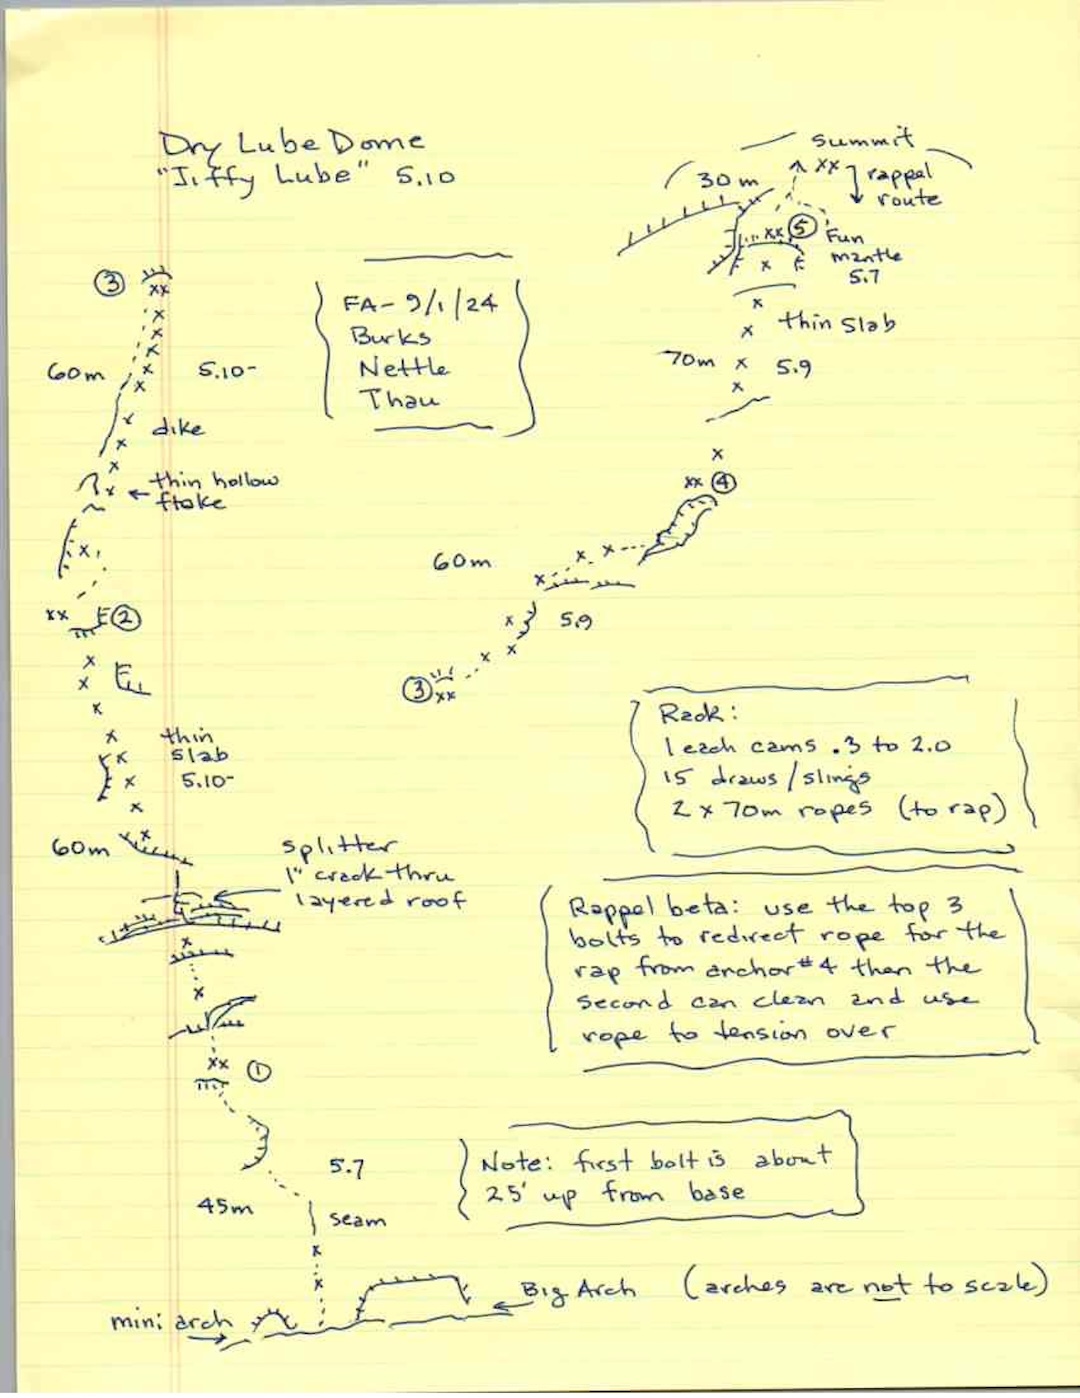 Dry Lube Dome
"Jiffy Lube" 5.10
summit
30m
xx
rappel
route
xx ⑤
Fun
mantle
5.7
thin slab
70m
5.9
xx ④
60m
5.9
③ xx
③
xx
60m
5.10-
dike
thin hollow
flake
xx ②
thin
slab
5.10-
60m
splitter
1" crack thru
layered roof
xx ①
5.7
45m
seam
mini arch
Big Arch (arches are not to scale)
FA - 9/1/24
Burks
Nettle
Thau
Rack:
1 each cams .3 to 2.0
15 draws/slings
2 x 70m ropes (to rap)
Rappel beta: use the top 3
bolts to redirect rope for the
rap from anchor #4 then the
second can clean and use
rope to tension over
Note: first bolt is about
25' up from base